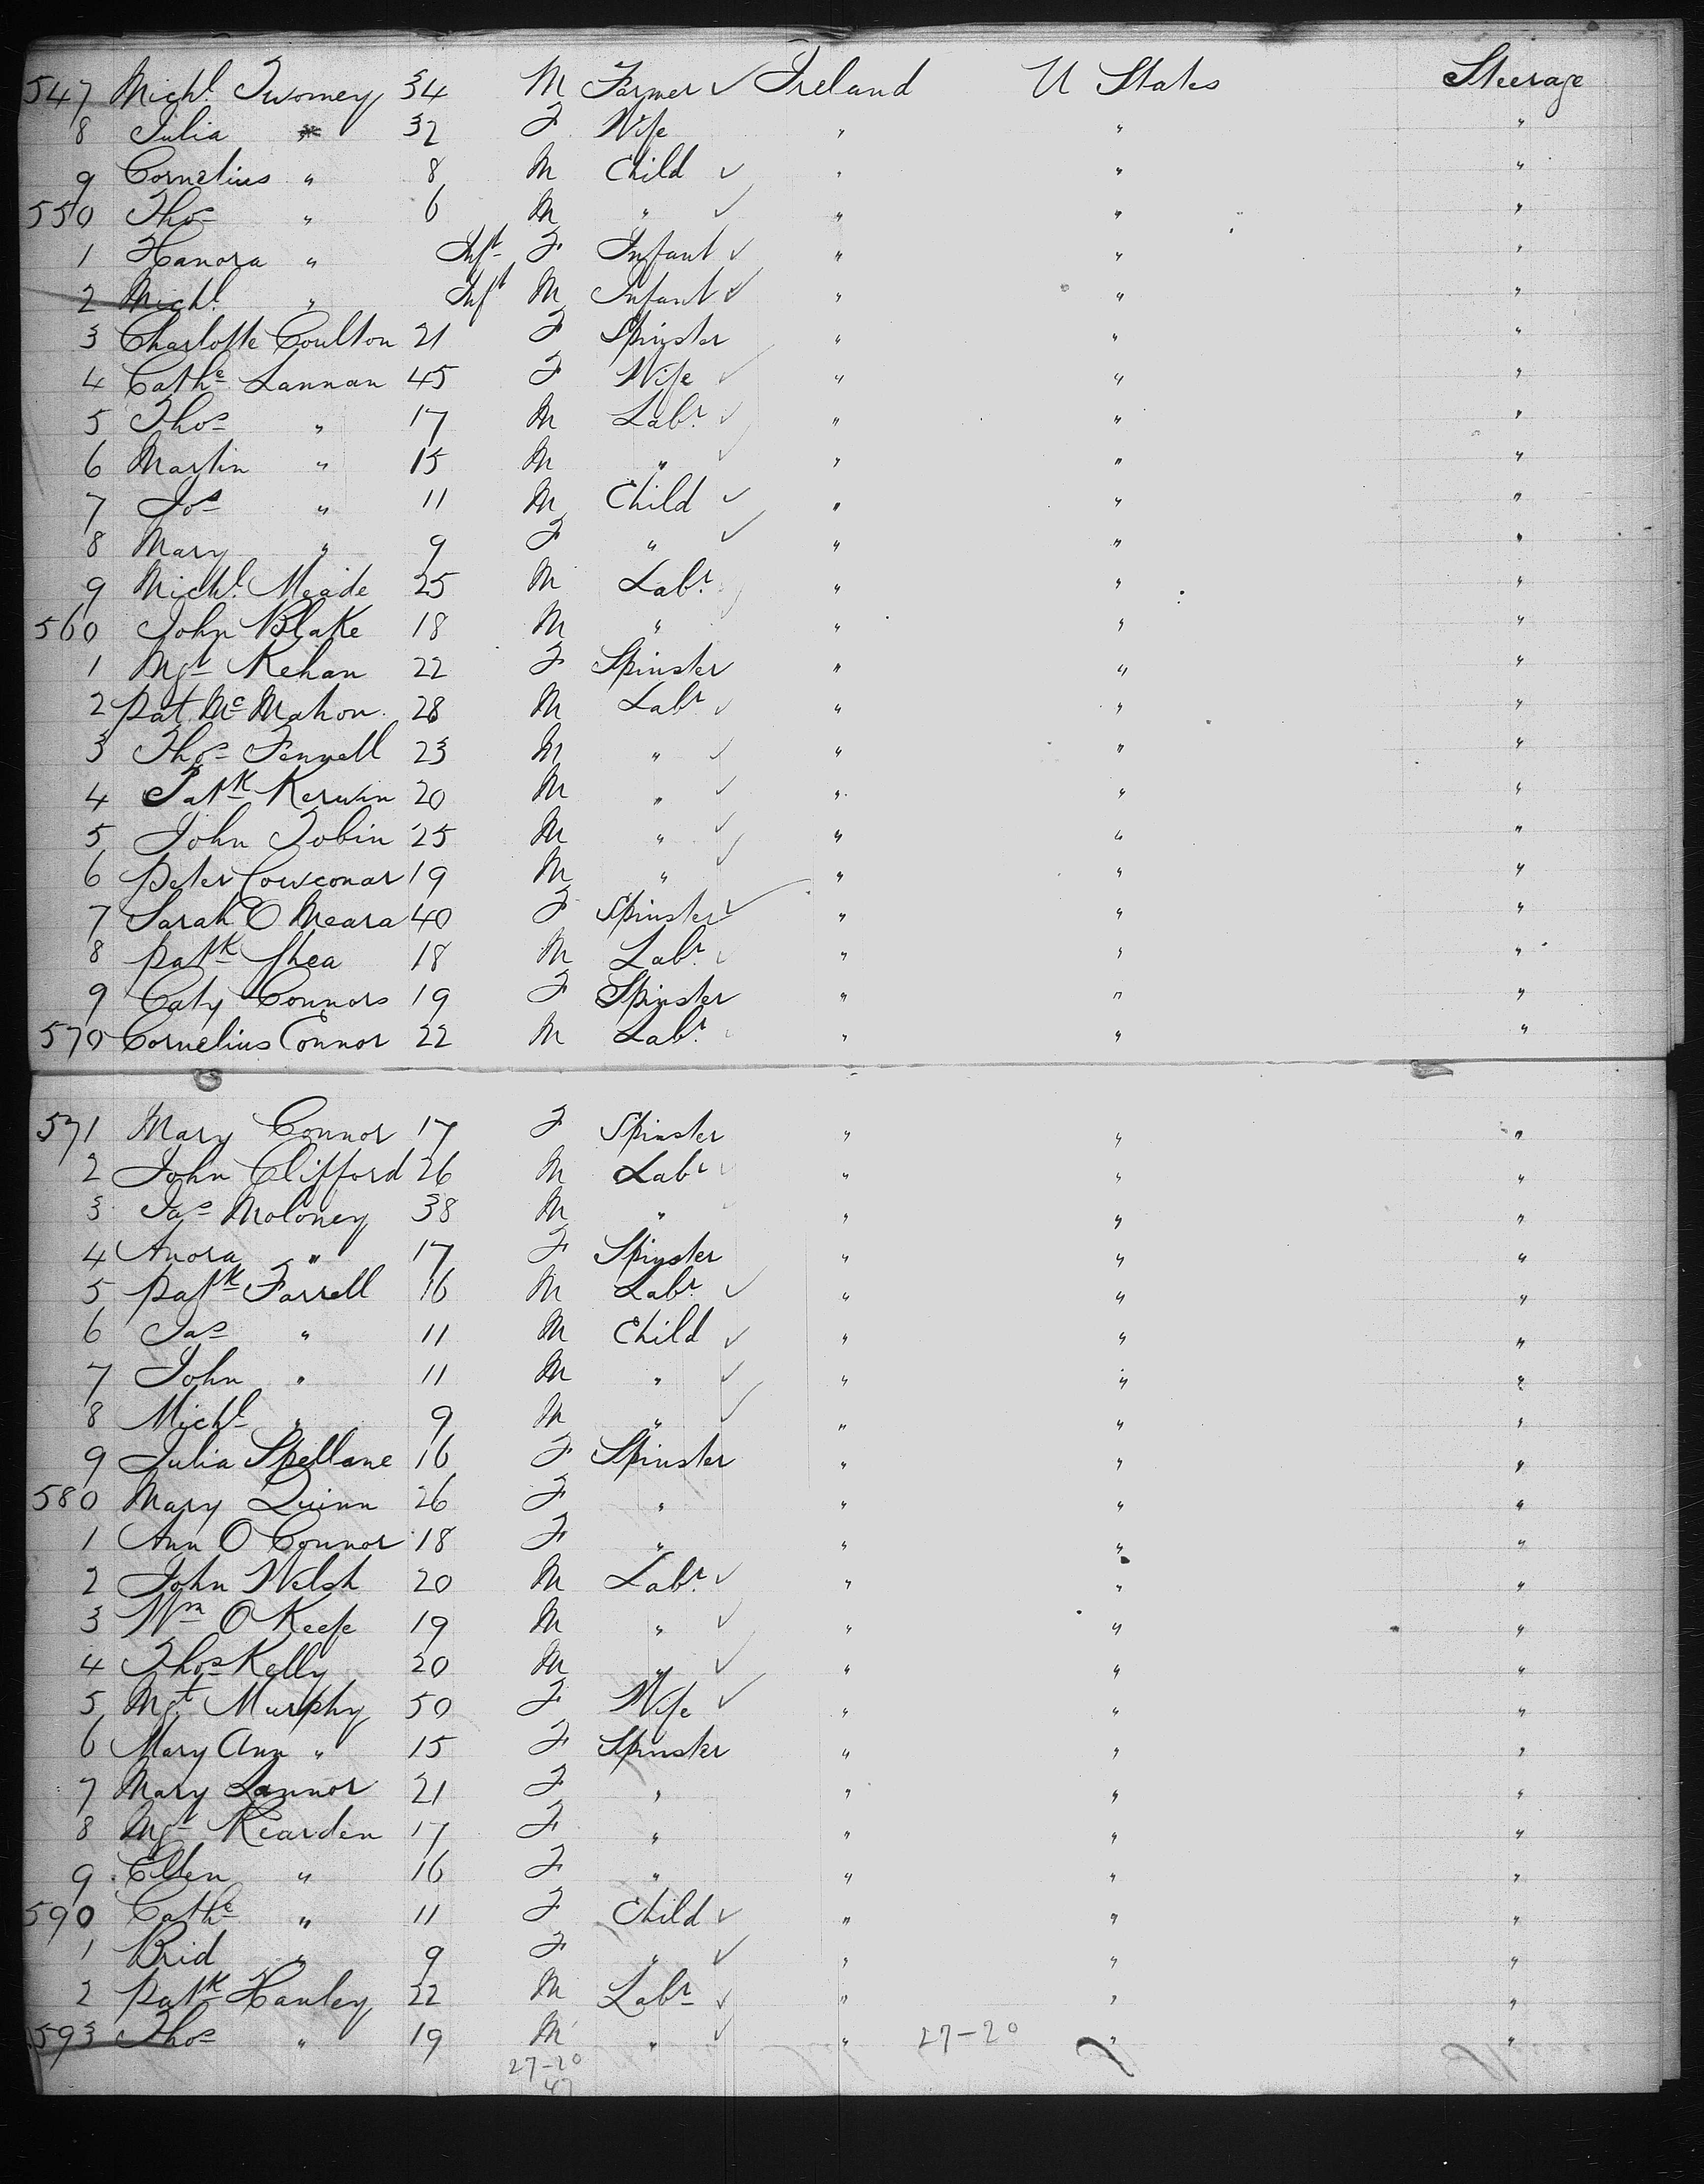 547 Michl. Twomey 34 M Farmer ✓ Ireland U States Steerage
8 Julia " 32 F Wife " " "
9 Cornelius " 8 M Child ✓ " " "
550 Thos " 6 M " ✓ " " "
1 Hanora " Inft F Infant ✓ " " "
2 Michl. " Inft M Infant ✓ " " "
3 Charlotte Coulton 21 F Spinster " " "
4 Cathe Lannan 45 F Wife ✓ " " "
5 Thos " 17 M Labr. ✓ " " "
6 Martin " 15 M " ✓ " " "
7 Jos " 11 M Child ✓ " " "
8 Mary " 9 F " ✓ " " "
9 Michl. Meade 25 M Labr. " " "
560 John Blake 18 M " " " "
1 Mgt Kehan 22 F Spinster " " "
2 Pat Mc Mahon 28 M Labr ✓ " " "
3 Thos Fennell 23 M " ✓ " " "
4 Patk Kerwin 20 M " ✓ " " "
5 John Tobin 25 M " ✓ " " "
6 Peter 19 M " ✓ " " "
7 Sarah O Meara 40 F Spinster ✓ " " "
8 Patk Shea 18 M Labr. ✓ " " "
9 Caty Connors 19 F Spinster " " "
570 Cornelius Connor 22 M Labr. " " "
571 Mary Connor 17 F Spinster " " "
2 John Clifford 26 M Labr ✓ " " "
3 Jas Moloney 38 M " " " "
4 Anora " 17 F Spinster " " "
5 Patk Farrell 16 M Labr ✓ " " "
6 Jas " 11 M Child ✓ " " "
7 John " 11 M " ✓ " " "
8 Michl " 9 M " ✓ " " "
9 Julia Spellane 16 F Spinster " " "
580 Mary Quinn 26 F " " " "
1 Ann O Connor 18 F " " " "
2 John Welsh 20 M Labr. ✓ " " "
3 Wm O Keefe 19 M " ✓ " " "
4 Thos Kelly 20 M " ✓ " " "
5 Mgt Murphy 50 F Wife ✓ " " "
6 Mary Ann " 15 F Spinster " " "
7 Mary Lannor 21 F " " " "
8 Mgt Rearden 17 F " " " "
9 Ellen " 16 F " " " "
590 Cathe " 11 F Child ✓ " " "
1 Brid " 9 F " ✓ " " "
2 Patk Hanley 22 M Labr ✓ " " "
593 Thos " 19 M " ✓ " 27-20 " "
27-20
47